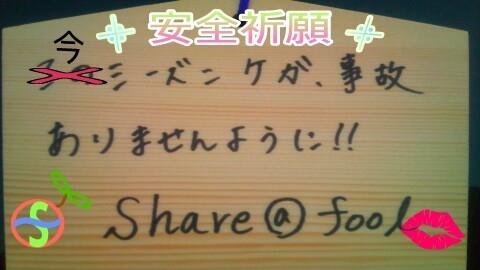 安全祈願
今
シーズンケガ、事故
ありませんように!!
S
Share@fool